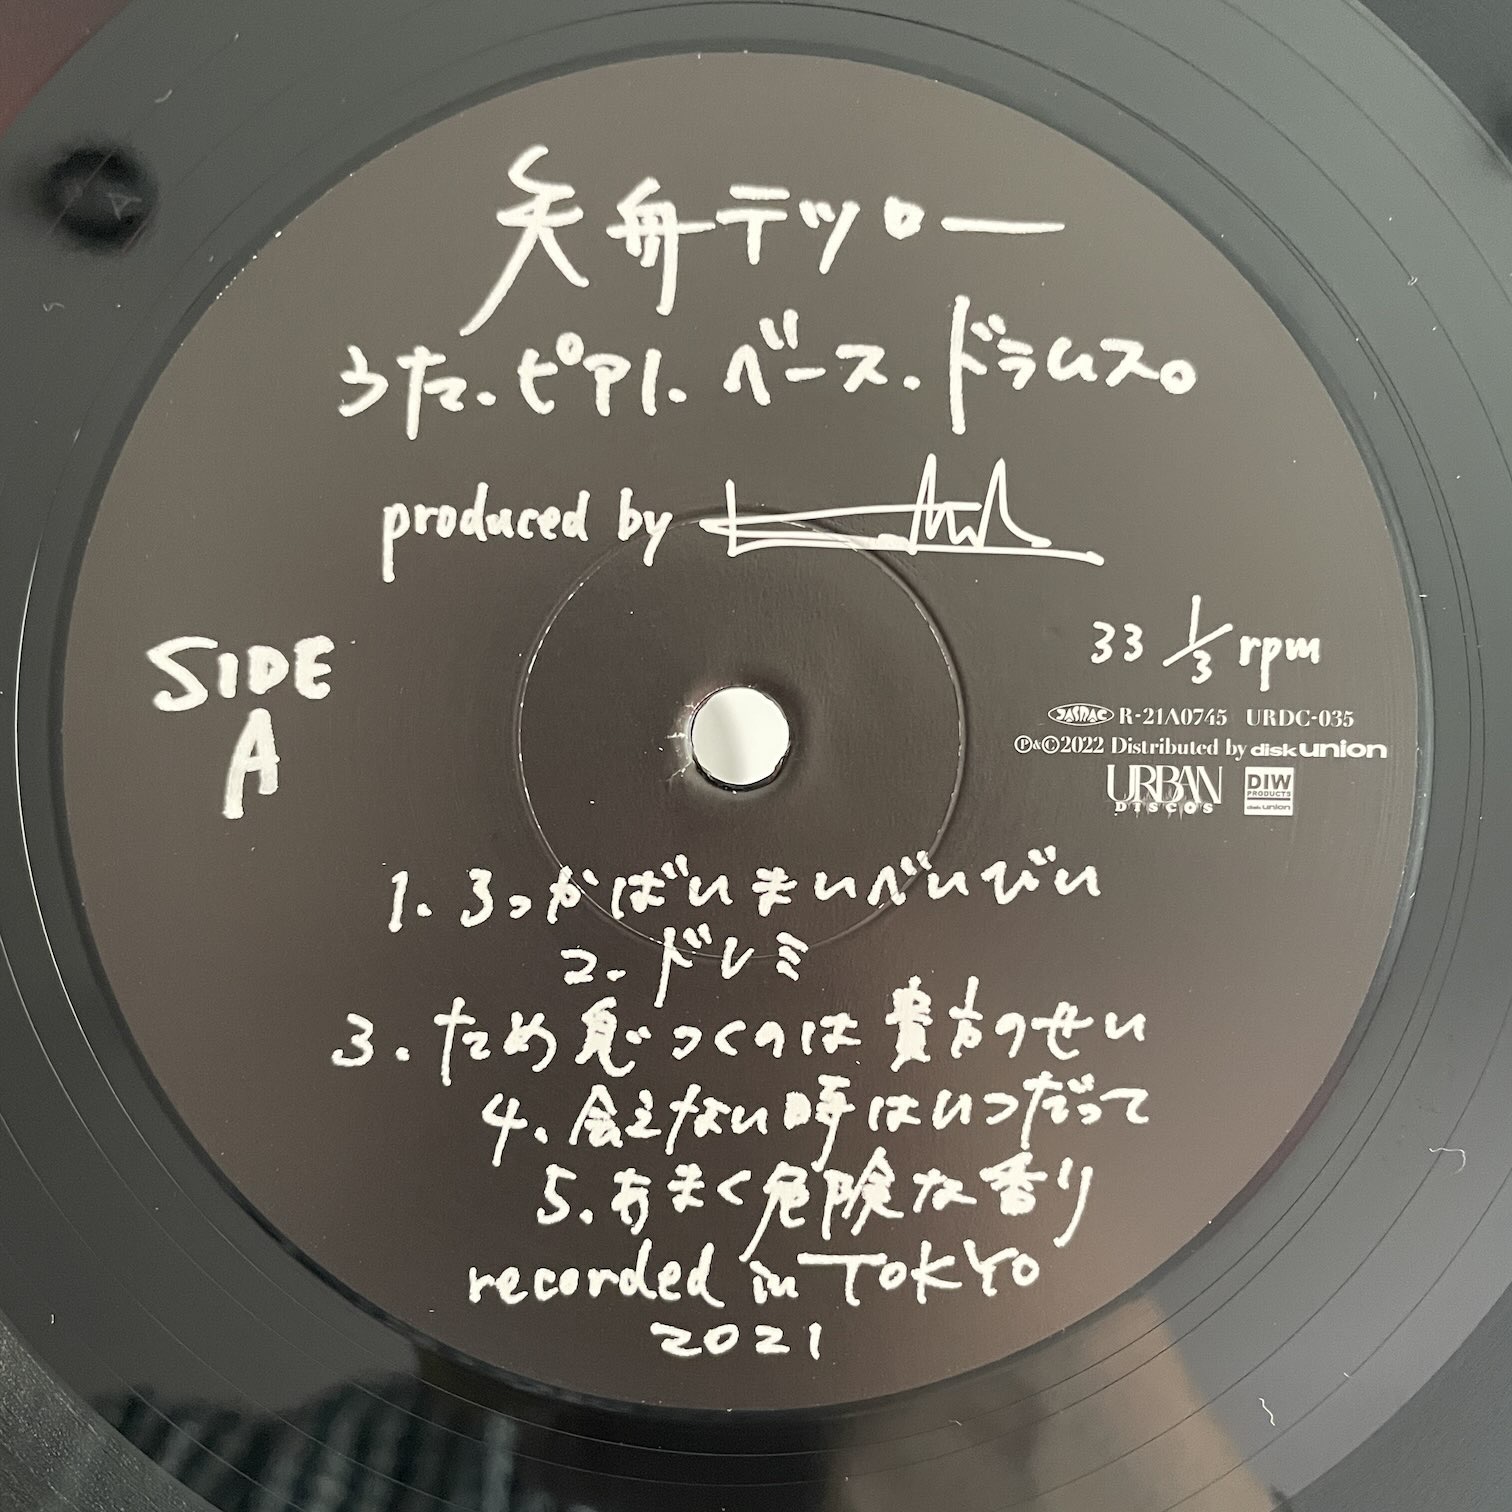 矢舟テツロー
うた.ピアノ.ベース.ドラムス。
produced by
SIDE
A
33 1/3 rpm
JASRAC R-21A0745 URDC-035
Ⓟ&©2022 Distributed by disk union
URBAN
DISCOS
DIW
PRODUCTS
disk union
1. ろっかばいまいべいびい
2. ドレミ
3. ため息つくのは貴方のせい
4. 会えない時はいつだって
5. あまく危険な香り
recorded in TOKYO
2021